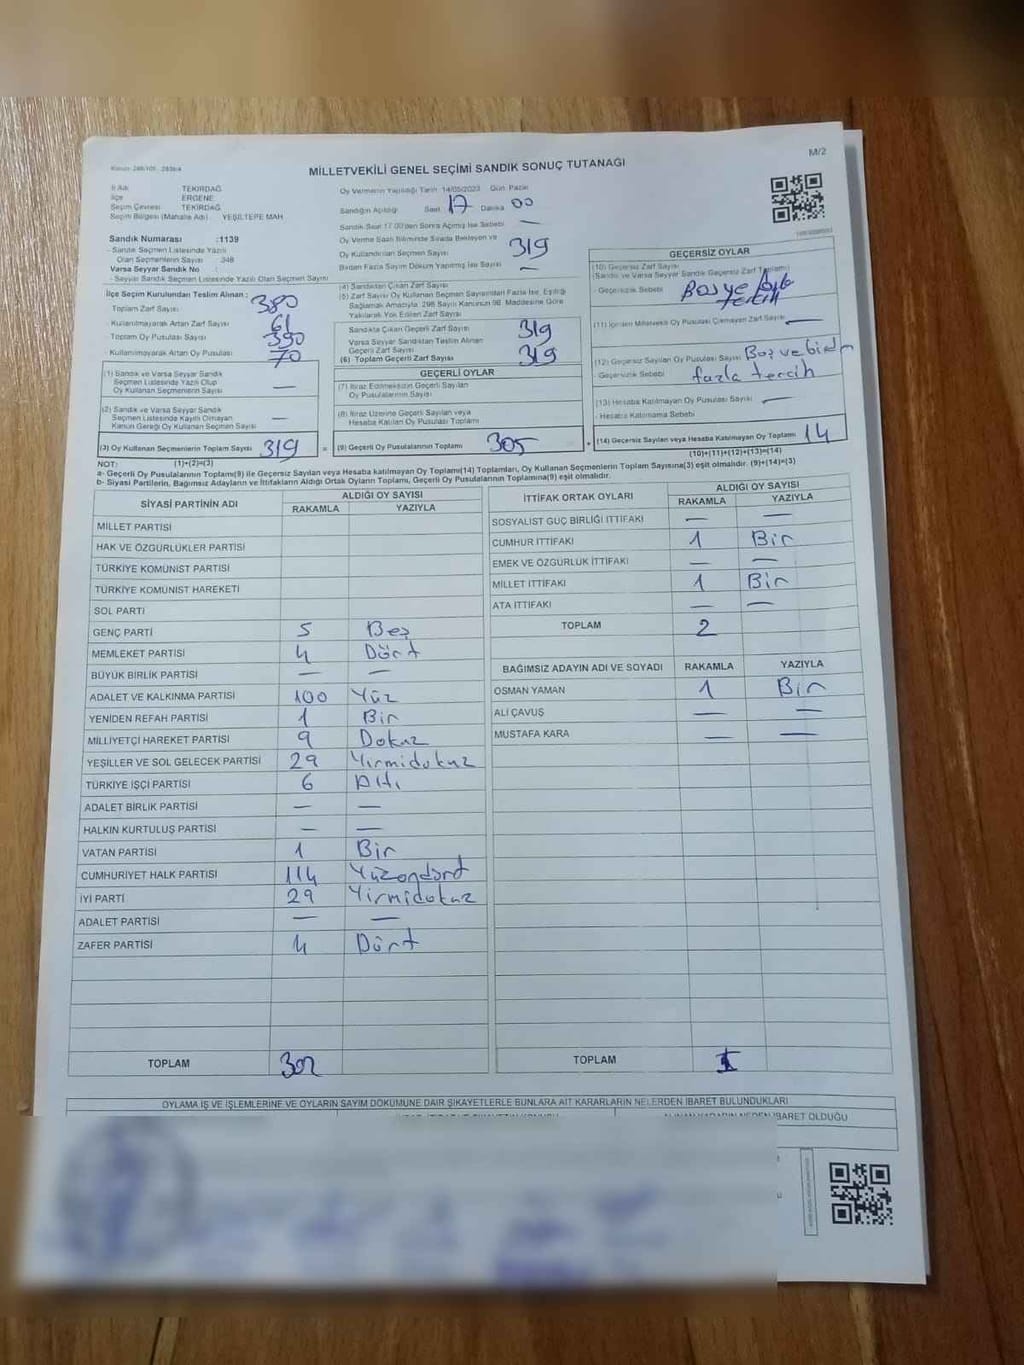 M/2
MİLLETVEKİLİ GENEL SEÇİMİ SANDIK SONUÇ TUTANAĞI
İl Adı TEKİRDAĞ
İlçe ERGENE
Seçim Çevresi TEKİRDAĞ
Seçim Bölgesi (Mahalle Adı) YEŞİLTEPE MAH
Sandık Numarası :1139
- Sandık Seçmen Listesinde Yazılı
Olan Seçmenlerin Sayısı : 348
Varsa Seyyar Sandık No :
- Seyyar Sandık Seçmen Listesinde Yazılı Olan Seçmen Sayısı
Oy Vermenin Yapıldığı Tarih 14/05/2023 Gün Pazar
Sandığın Açıldığı Saat 17 Dakika 00
Sandık Saat 17.00'den Sonra Açılmış İse Sebebi —
Oy Verme Saati Bitiminde Sırada Bekleyen ve
Oy Kullandırılan Seçmen Sayısı 319
Birden Fazla Sayım Döküm Yapılmış İse Sayısı —
İlçe Seçim Kurulundan Teslim Alınan :
Toplam Zarf Sayısı 380
- Kullanılmayarak Artan Zarf Sayısı 61
Toplam Oy Pusulası 390
- Kullanılmayarak Artan Oy Pusulası 70
(1) Sandık ve Varsa Seyyar Sandık
Seçmen Listesinde Yazılı Olup
Oy Kullanan Seçmenlerin Sayısı —
(2) Sandık ve Varsa Seyyar Sandık
Seçmen Listesinde Kayıtlı Olmayan
Kanun Gereği Oy Kullanan Seçmen Sayısı —
(3) Oy Kullanan Seçmenlerin Toplam Sayısı 319
(1)+(2)=(3)
(4) Sandıktan Çıkan Zarf Sayısı
(5) Zarf Sayısı Oy Kullanan Seçmen Sayısından Fazla İse, Eşitliği
Sağlamak Amacıyla, 298 Sayılı Kanunun 98. Maddesine Göre
Yakılarak Yok Edilen Zarf Sayısı
Sandıkta Çıkan Geçerli Zarf Sayısı 319
Varsa Seyyar Sandıktan Teslim Alınan
Geçerli Zarf Sayısı
(6) Toplam Geçerli Zarf Sayısı 319
GEÇERLİ OYLAR
(7) İtiraz Edilmeksizin Geçerli Sayılan
Oy Pusulaları Toplamı
(8) İtiraz Üzerine Geçerli Sayılan veya
Hesaba Katılan Oy Pusulası Toplamı
= (9) Geçerli Oy Pusulalarının Toplamı 305
GEÇERSİZ OYLAR
(10) Geçersiz Zarf Sayısı
(Sandık ve Varsa Seyyar Sandık Geçersiz Zarf Toplamı)
- Geçersizlik Sebebi
(11) İçinden Milletvekili Oy Pusulası Çıkmayan Zarf Sayısı —
(12) Geçersiz Sayılan Oy Pusulası Sayısı Boş ve birden
- Geçersizlik Sebebi fazla tercih
(13) Hesaba Katılmayan Oy Pusulası Sayısı —
- Hesaba Katılmama Sebebi
+ (14) Geçersiz Sayılan veya Hesaba Katılmayan Oy Toplamı 14
(10)+(11)+(12)+(13)=(14)
NOT:
a- Geçerli Oy Pusulalarının Toplamı(9) ile Geçersiz Sayılan veya Hesaba katılmayan Oy Toplamı(14) Toplamları, Oy Kullanan Seçmenlerin Toplam Sayısına(3) eşit olmalıdır. (9)+(14)=(3)
b- Siyasi Partilerin, Bağımsız Adayların ve İttifakların Aldığı Ortak Oyların Toplamı, Geçerli Oy Pusulalarının Toplamına(9) eşit olmalıdır.
SİYASİ PARTİNİN ADI ALDIĞI OY SAYISI
RAKAMLA YAZIYLA
MİLLET PARTİSİ
HAK VE ÖZGÜRLÜKLER PARTİSİ
TÜRKİYE KOMÜNİST PARTİSİ
TÜRKİYE KOMÜNİST HAREKETİ
SOL PARTİ
GENÇ PARTİ 5 Beş
MEMLEKET PARTİSİ 4 Dört
BÜYÜK BİRLİK PARTİSİ — —
ADALET VE KALKINMA PARTİSİ 100 Yüz
YENİDEN REFAH PARTİSİ 1 Bir
MİLLİYETÇİ HAREKET PARTİSİ 9 Dokuz
YEŞİLLER VE SOL GELECEK PARTİSİ 29 Yirmidokuz
TÜRKİYE İŞÇİ PARTİSİ 6 Altı
ADALET BİRLİK PARTİSİ — —
HALKIN KURTULUŞ PARTİSİ — —
VATAN PARTİSİ 1 Bir
CUMHURİYET HALK PARTİSİ 114 Yüzondört
İYİ PARTİ 29 Yirmidokuz
ADALET PARTİSİ — —
ZAFER PARTİSİ 4 Dört
TOPLAM 302
İTTİFAK ORTAK OYLARI ALDIĞI OY SAYISI
RAKAMLA YAZIYLA
SOSYALİST GÜÇ BİRLİĞİ İTTİFAKI — —
CUMHUR İTTİFAKI 1 Bir
EMEK VE ÖZGÜRLÜK İTTİFAKI — —
MİLLET İTTİFAKI 1 Bir
ATA İTTİFAKI — —
TOPLAM 2
BAĞIMSIZ ADAYIN ADI VE SOYADI RAKAMLA YAZIYLA
OSMAN YAMAN 1 Bir
ALİ ÇAVUŞ — —
MUSTAFA KARA — —
TOPLAM 1
OYLAMA İŞ VE İŞLEMLERİNE VE OYLARIN SAYIM DÖKÜMÜNE DAİR ŞİKAYETLERLE BUNLARA AİT KARARLARIN NELERDEN İBARET BULUNDUKLARI